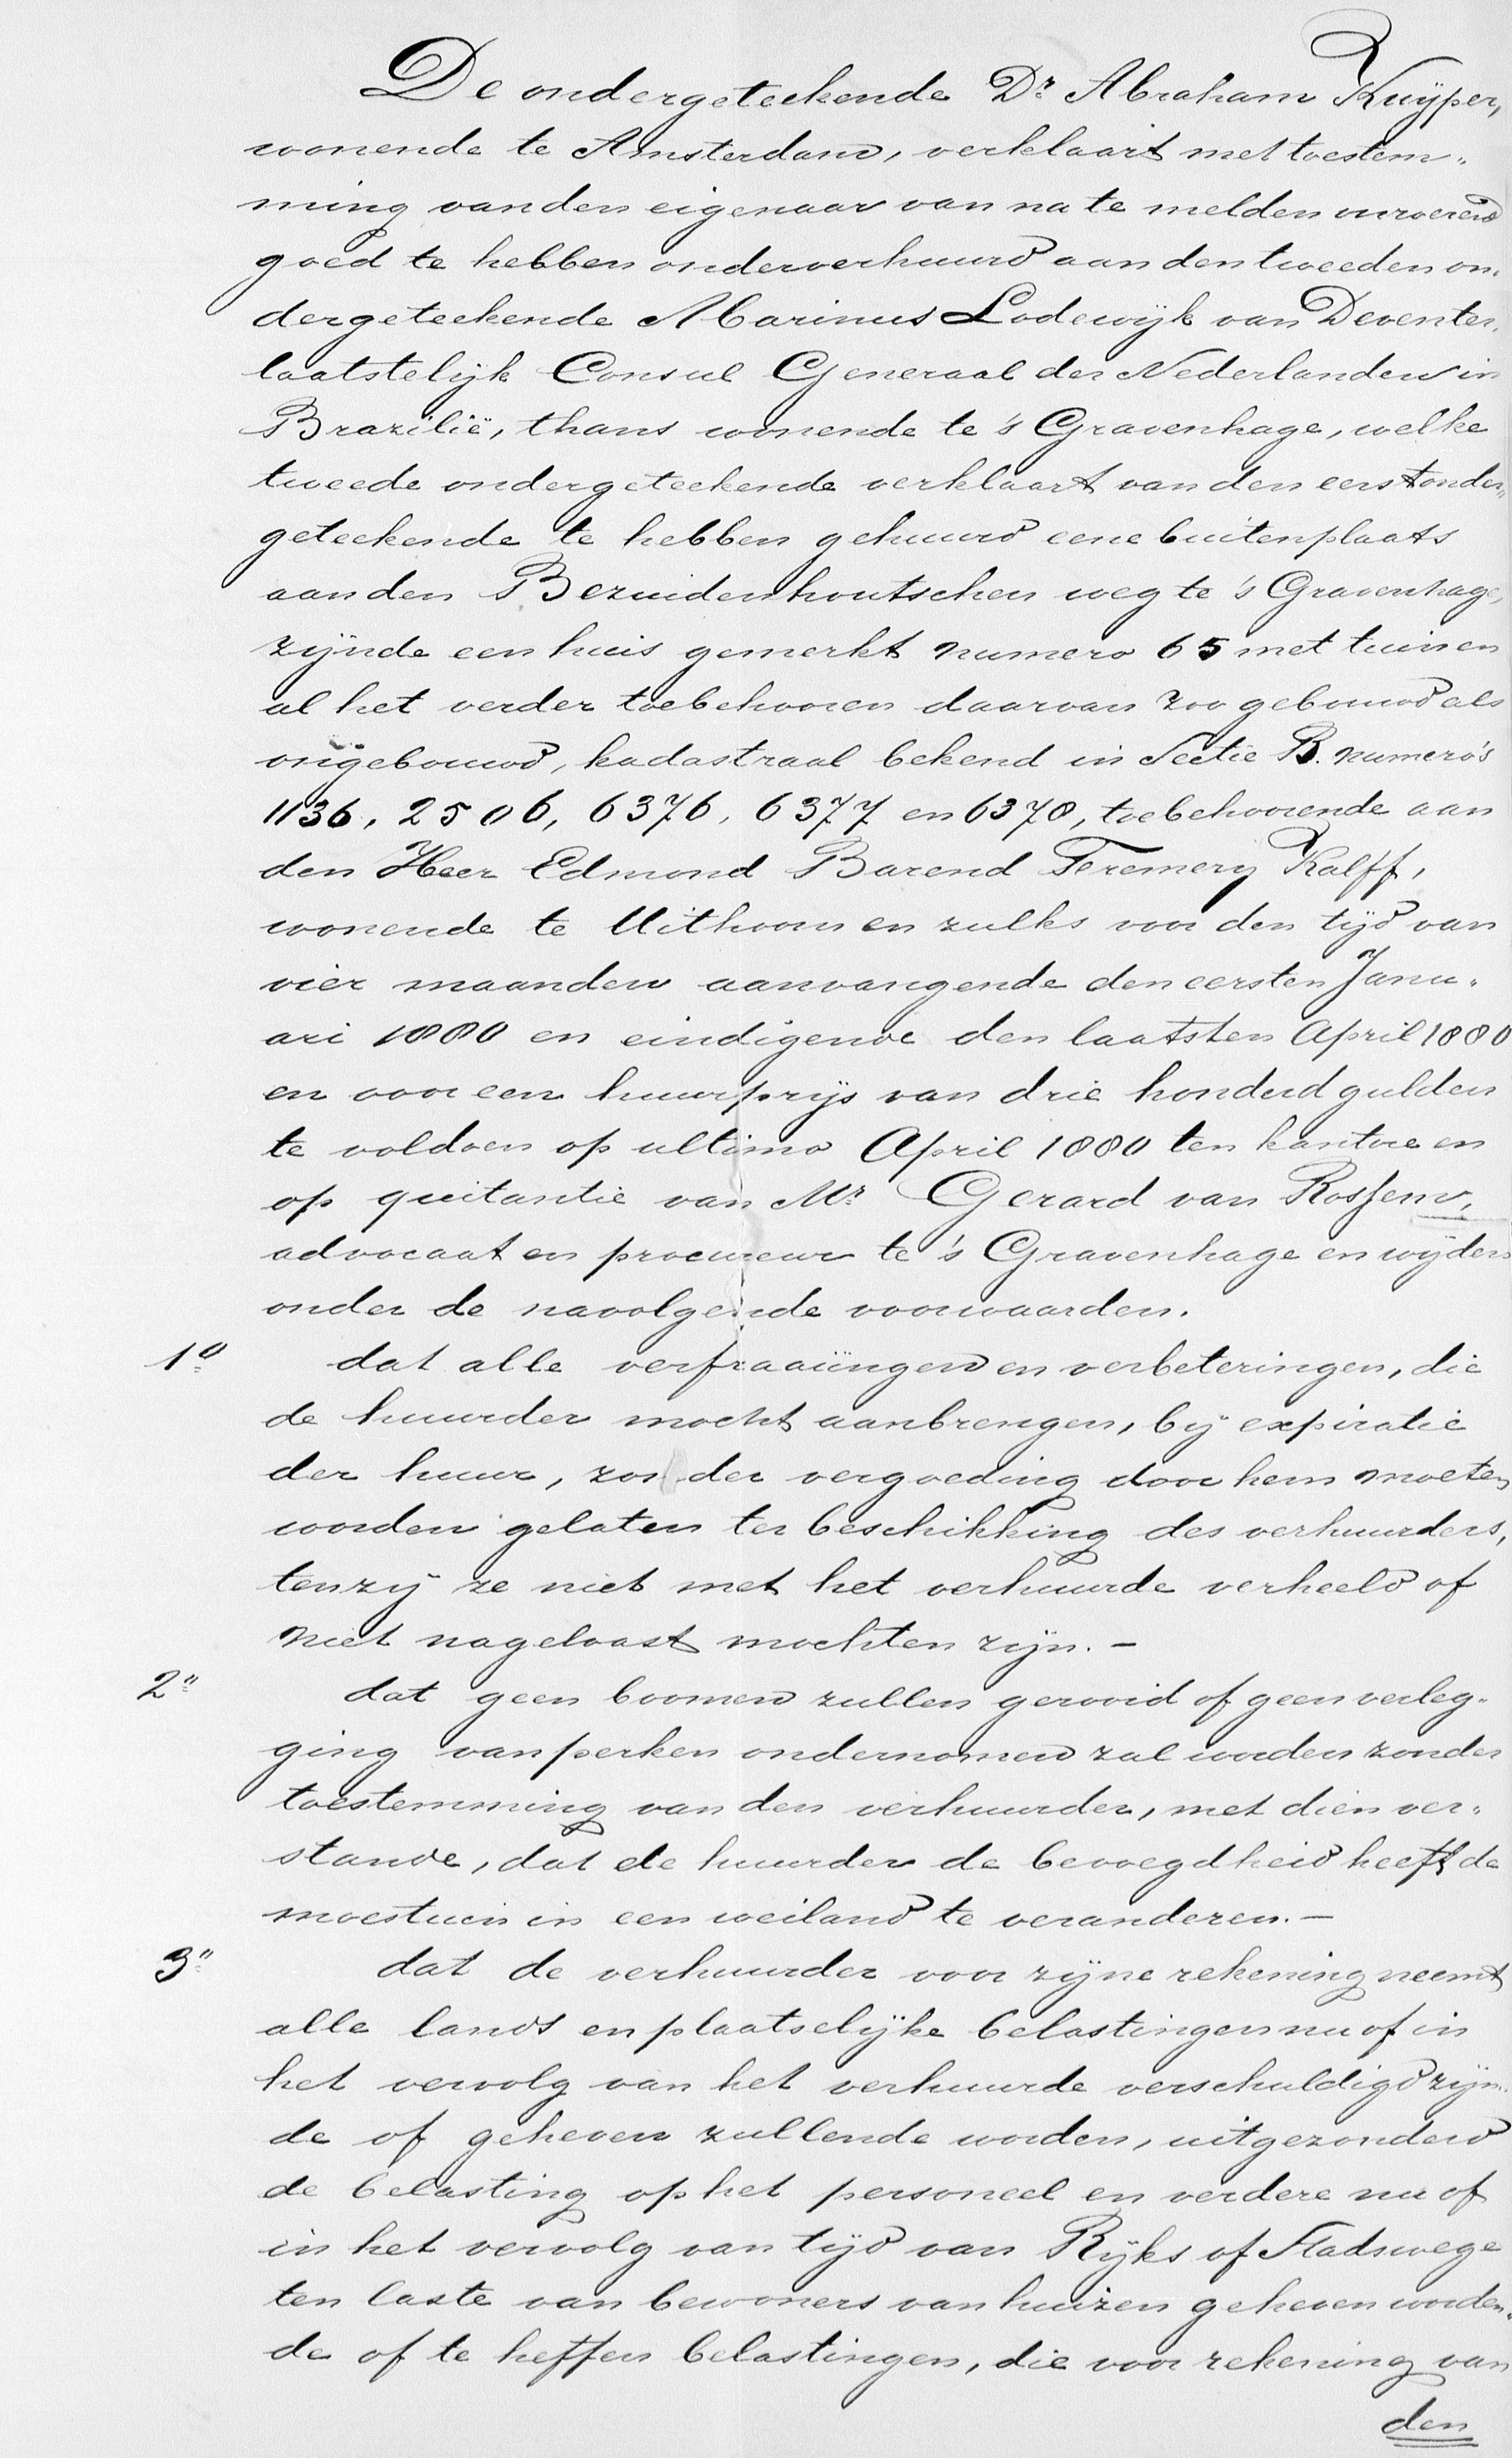 De ondergeteekende Dr Abraham Kuÿper,
wonende te Amsterdam, verklaart met toestem-
ming van den eigenaar van na te melden onroerend
goed te hebben onderverhuurd aan den tweeden on-
dergeteekende Marinus Lodewÿk van Deventer,
laatstelÿk Consul Generaal der Nederlanden in
Brazilië, thans wonende te 's Gravenhage, welke
tweede ondergeteekende verklaart van den eerstonder-
geteekende te hebben gehuurd eene buitenplaats
aan den Bezuidenhoutschen weg te 's Gravenhage,
zÿnde een huis gemerkt numero 65 met tuin en
al het verder toebehooren daarvan zoo gebouwd als
ongebouwd, kadastraal bekend in Sectie B. numero's
1136, 2506, 6376, 6377 en 6378, toebehoorende aan
den Heer Edmond Barend Jeremery Kalff,
wonende te Uithoorn en zulks voor den tÿd van
vier maanden aanvangende den eersten Janu-
ari 1880 en eindigende den laatsten April 1880
en voor een huurprÿs van drie honderd gulden
te voldoen op ultimo April 1880 ten kantore en
op quitantie van Mr Gerard van Rossem,
advocaat en procureur te 's Gravenhage en wÿders
onder de navolgende voorwaarden.
1o dat alle verfraaiingen en verbeteringen, die
de huurder mocht aanbrengen, bÿ expiratie
der huur, zonder vergoeding door hem moeten
worden gelaten ter beschikking des verhuurders,
tenzÿ ze niet met het verhuurde verheeld of
niet nagelvast mochten zÿn. –
2o dat geen boomen zullen gerooid of geen verleg-
ging van perken ondernomen zal worden zonder
toestemming van den verhuurder, met dien ver-
stande, dat de huurder de bevoegdheid heeft de
moestuin in een weiland te veranderen. –
3o dat de verhuurder voor zÿne rekening neemt
alle lands en plaatselÿke belastingen nu of in
het vervolg van het verhuurde verschuldigd zÿn-
de of geheven zullende worden, uitgezonderd
de belasting op het personeel en verdere nu of
in het vervolg van tÿd van Rÿks of Stadswege
ten laste van bewoners van huizen geheven worden-
de of te heffen belastingen, die voor rekening van
den